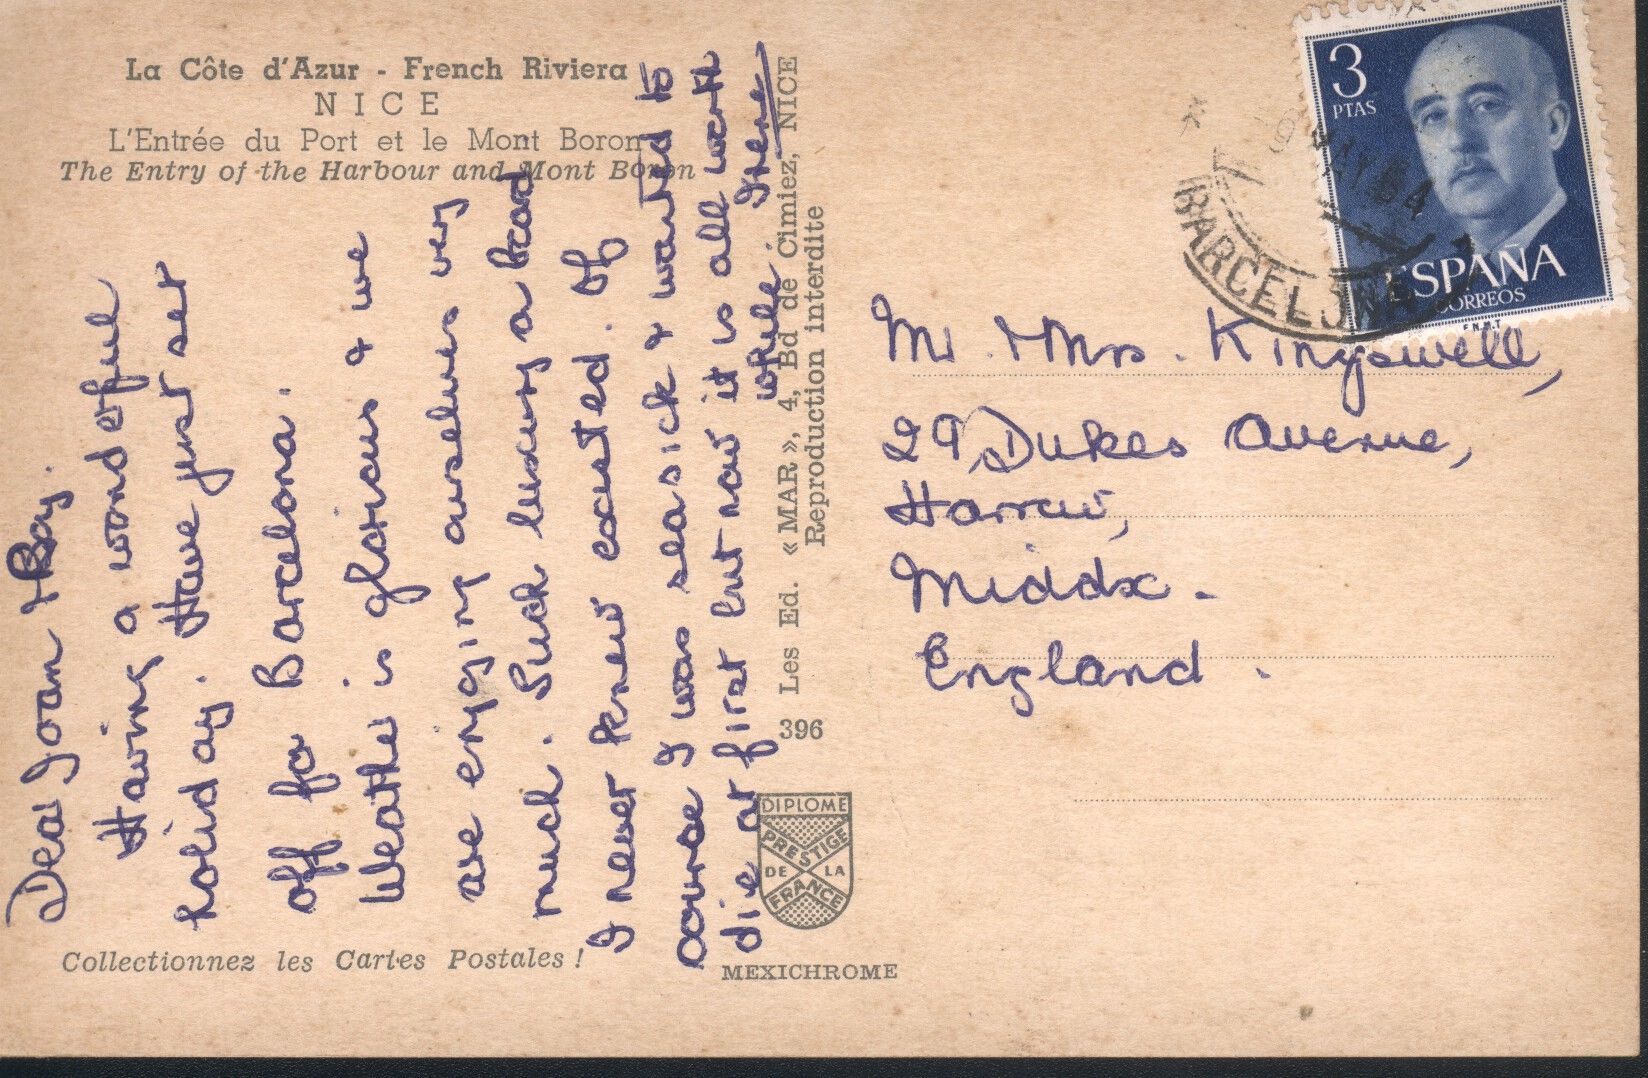 La Côte d'Azur - French Riviera
NICE
L'Entrée du Port et le Mont Boron
The Entry of the Harbour and Mont Boron
Dear Joan & Ray.
Having a wonderful
holiday. Have just set
off for Barcelona.
Weather is glorious & we
are enjoying ourselves very
much. Such luxury on board
I never knew existed. Of
course I was seasick & wanted to
die at first but now it is all worth
while. Irene
Collectionnez les Cartes Postales !
396 Les Ed. «MAR», 4, Bd de Cimiez, NICE
Reproduction interdite
DIPLOME
PRESTIGE
DE LA
FRANCE
MEXICHROME
3
PTAS
ESPAÑA
CORREOS
F.N.M.T
BARCELONA
MAY 64
Mr. & Mrs. Kingswell,
29, Dukes Avenue,
Harrow,
Middx.
England.